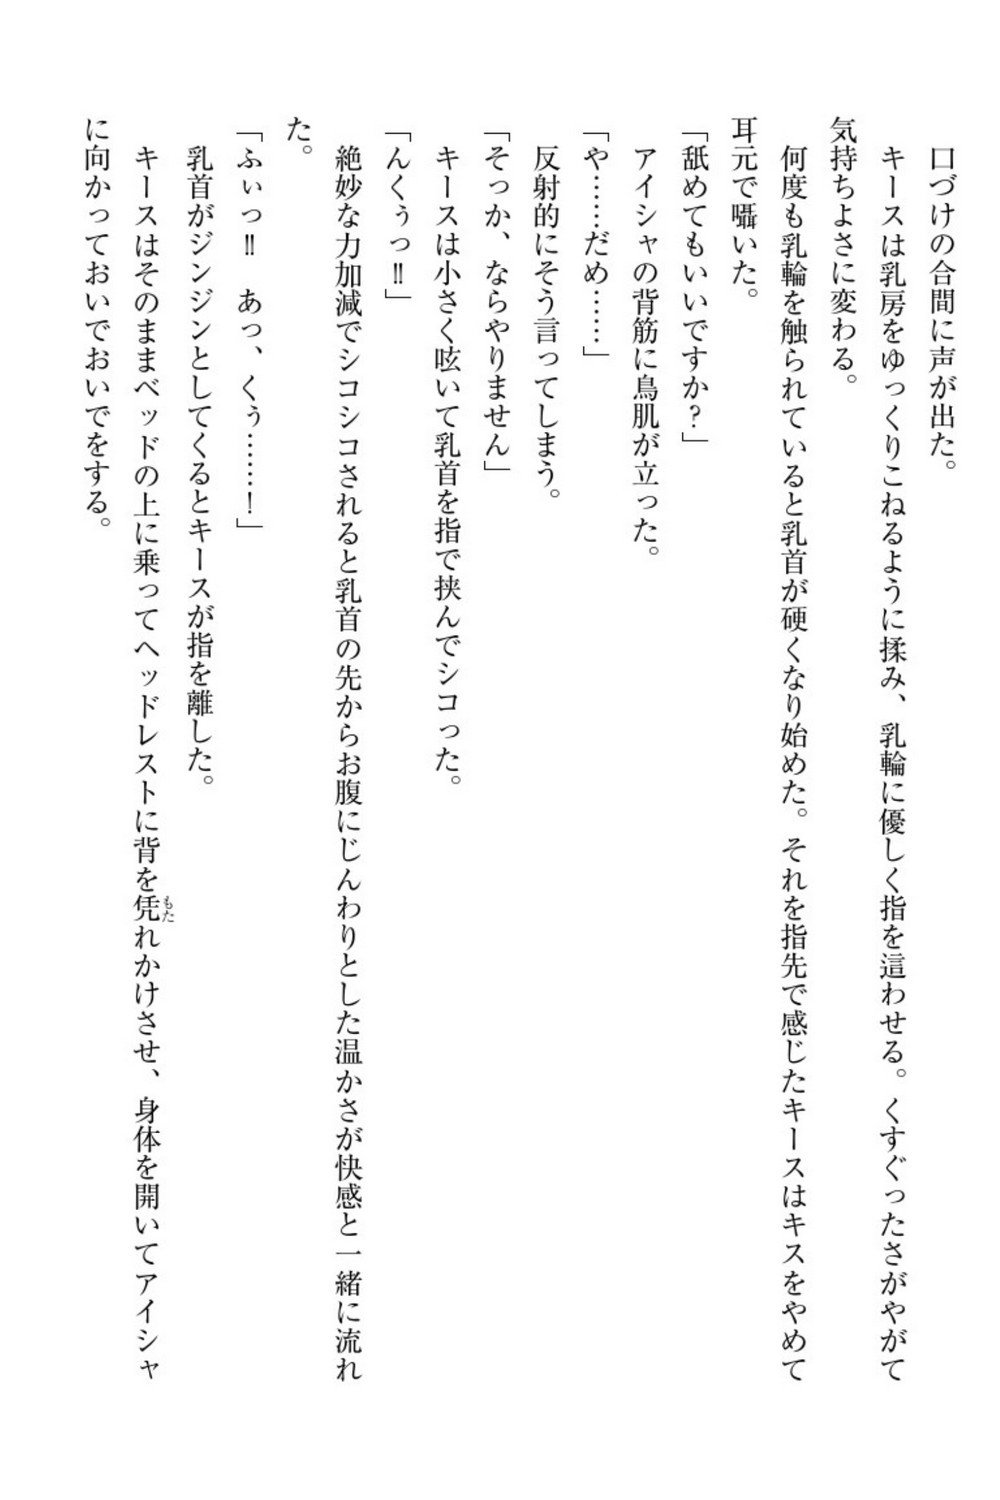 口づけの合間に声が出た。
キースは乳房をゆっくりこねるように揉み、乳輪に優しく指を這わせる。くすぐったさがやがて
気持ちよさに変わる。
何度も乳輪を触られていると乳首が硬くなり始めた。それを指先で感じたキースはキスをやめて
耳元で囁いた。
「舐めてもいいですか？」
アイシャの背筋に鳥肌が立った。
「や……だめ……」
反射的にそう言ってしまう。
「そっか、ならやりません」
キースは小さく呟いて乳首を指で挟んでシコった。
「んくぅっ‼」
絶妙な力加減でシコシコされると乳首の先からお腹にじんわりとした温かさが快感と一緒に流れ
た。
「ふぃっ‼　あっ、くぅ……！」
乳首がジンジンとしてくるとキースが指を離した。
キースはそのままベッドの上に乗ってヘッドレストに背を凭れかけさせ、身体を開いてアイシャ
もた
に向かっておいでおいでをする。